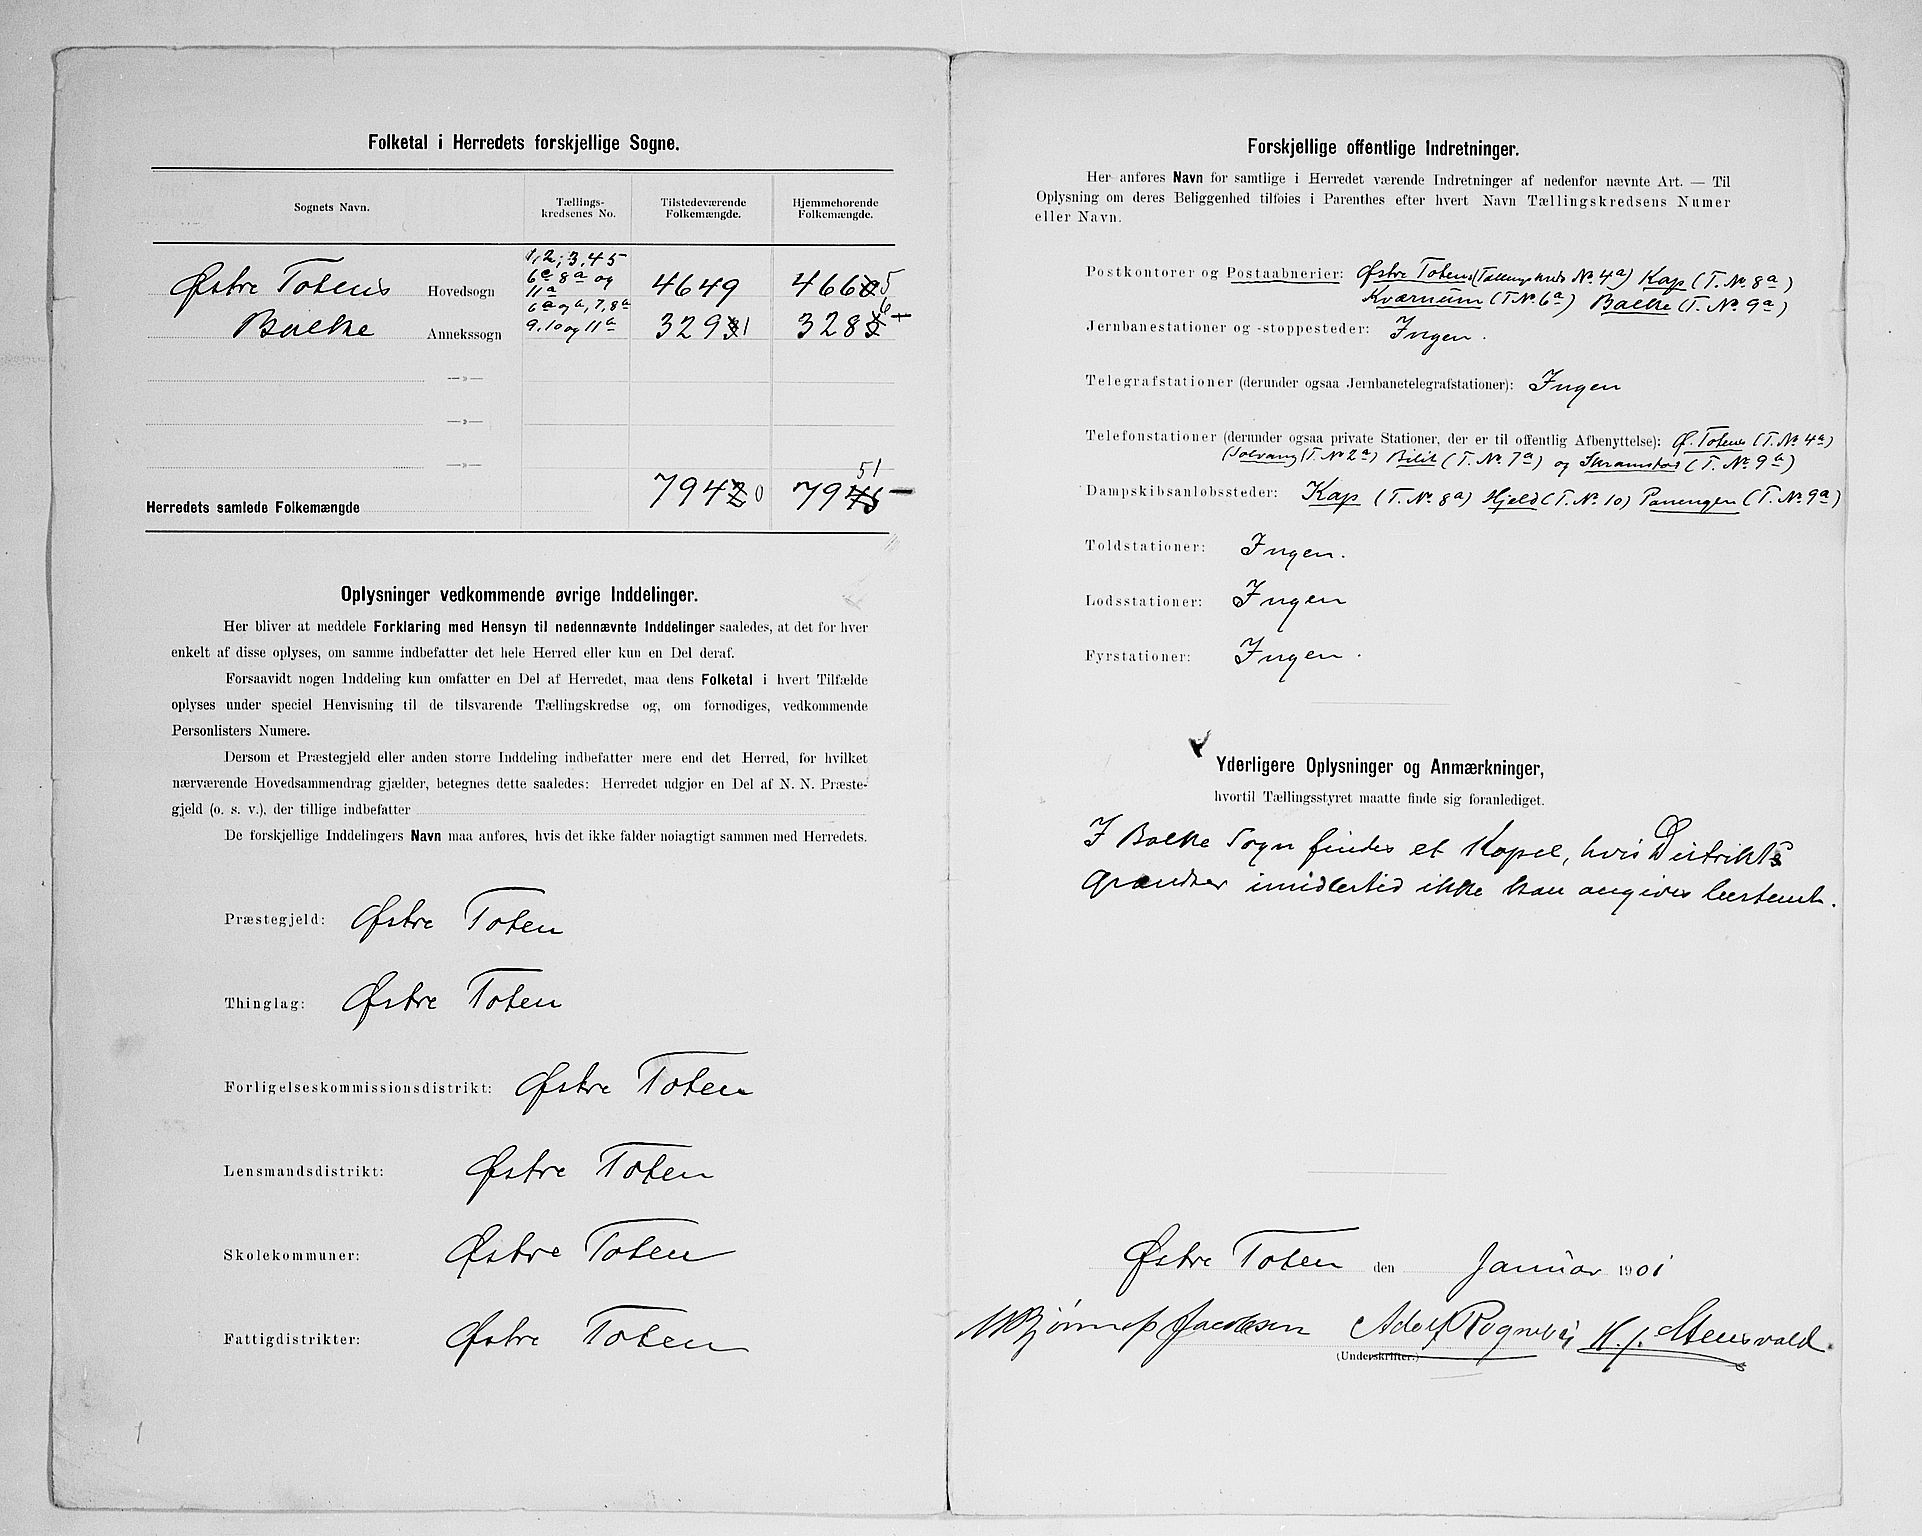 Folketal i Herredets forskjellige Sogne.
Sognets Navn.
Tællings-
kredsenes No.
Tilstedeværende
Folkemængde.
Hjemmehørende
Folkemængde.
1, 2, 3, 4 5
6c 8a og
11a
Østre Totens Hovedsogn 4649 46605
6a og b, 7, 8b
9, 10 og 11b
Balke Annekssogn 32931 32836
—»—
—»—
—»—
51
Herredets samlede Folkemængde 79420 7945
Oplysninger vedkommende øvrige Inddelinger.
Her bliver at meddele Forklaring med Hensyn til nedennævnte Inddelinger saaledes, at det for hver
enkelt af disse oplyses, om samme indbefatter det hele Herred eller kun en Del deraf.
Forsaavidt nogen Inddeling kun omfatter en Del af Herredet, maa dens Folketal i hvert Tilfælde
oplyses under speciel Henvisning til de tilsvarende Tællingskredse og, om fornødiges, vedkommende
Personlisters Numere.
Dersom et Præstegjeld eller anden større Inddeling indbefatter mere end det Herred, for hvilket
nærværende Hovedsammendrag gjælder, betegnes dette saaledes: Herredet udgjør en Del af N. N. Præste-
gjeld (o. s. v.), der tillige indbefatter
De forskjellige Inddelingers Navn maa anføres, hvis det ikke falder nøiagtigt sammen med Herredets.
Præstegjeld: Østre Toten
Thinglag: Østre Toten
Forligelseskommissionsdistrikt: Østre Toten
Lensmandsdistrikt: Østre Toten
Skolekommuner: Østre Toten
Fattigdistrikter: Østre Toten
Forskjellige offentlige Indretninger.
Her anføres Navn for samtlige i Herredet værende Indretninger af nedenfor nævnte Art. — Til
Oplysning om deres Beliggenhed tilføies i Parenthes efter hvert Navn Tællingskredsens Numer
eller Navn.
Postkontorer og Postaabnerier: Østre Totens (Tællingskreds No. 4a) Kap (T. No. 8a)
Kværnum (T. No. 6a) Balke (T. No. 9a)
Jernbanestationer og -stoppesteder: Ingen.
Telegrafstationer (derunder ogsaa Jernbanetelegrafstationer): Ingen
Telefonstationer (derunder ogsaa private Stationer, der er til offentlig Afbenyttelse): Ø. Totens (T. No. 4a)
Solvang (T. No. 2a) Bilit (T. No. 7a) og Skramstad (T. No. 9b)
Dampskibsanløbssteder: Kap (T. No. 8a) Hjeld (T. No. 10) Panengen (T. No. 9a)
Toldstationer: Ingen.
Lodsstationer: Ingen
Fyrstationer: Ingen.
Yderligere Oplysninger og Anmærkninger,
hvortil Tællingsstyret maatte finde sig foranlediget.
I Balke Sogn findes et Kapel, hvis Distrikts
Grændser imidlertid ikke kan angives bestemt.
Østre Toten den Januar 1901
Jacobsen Adolf Rognebÿ K. J. Stensvold.
(Underskrifter.)